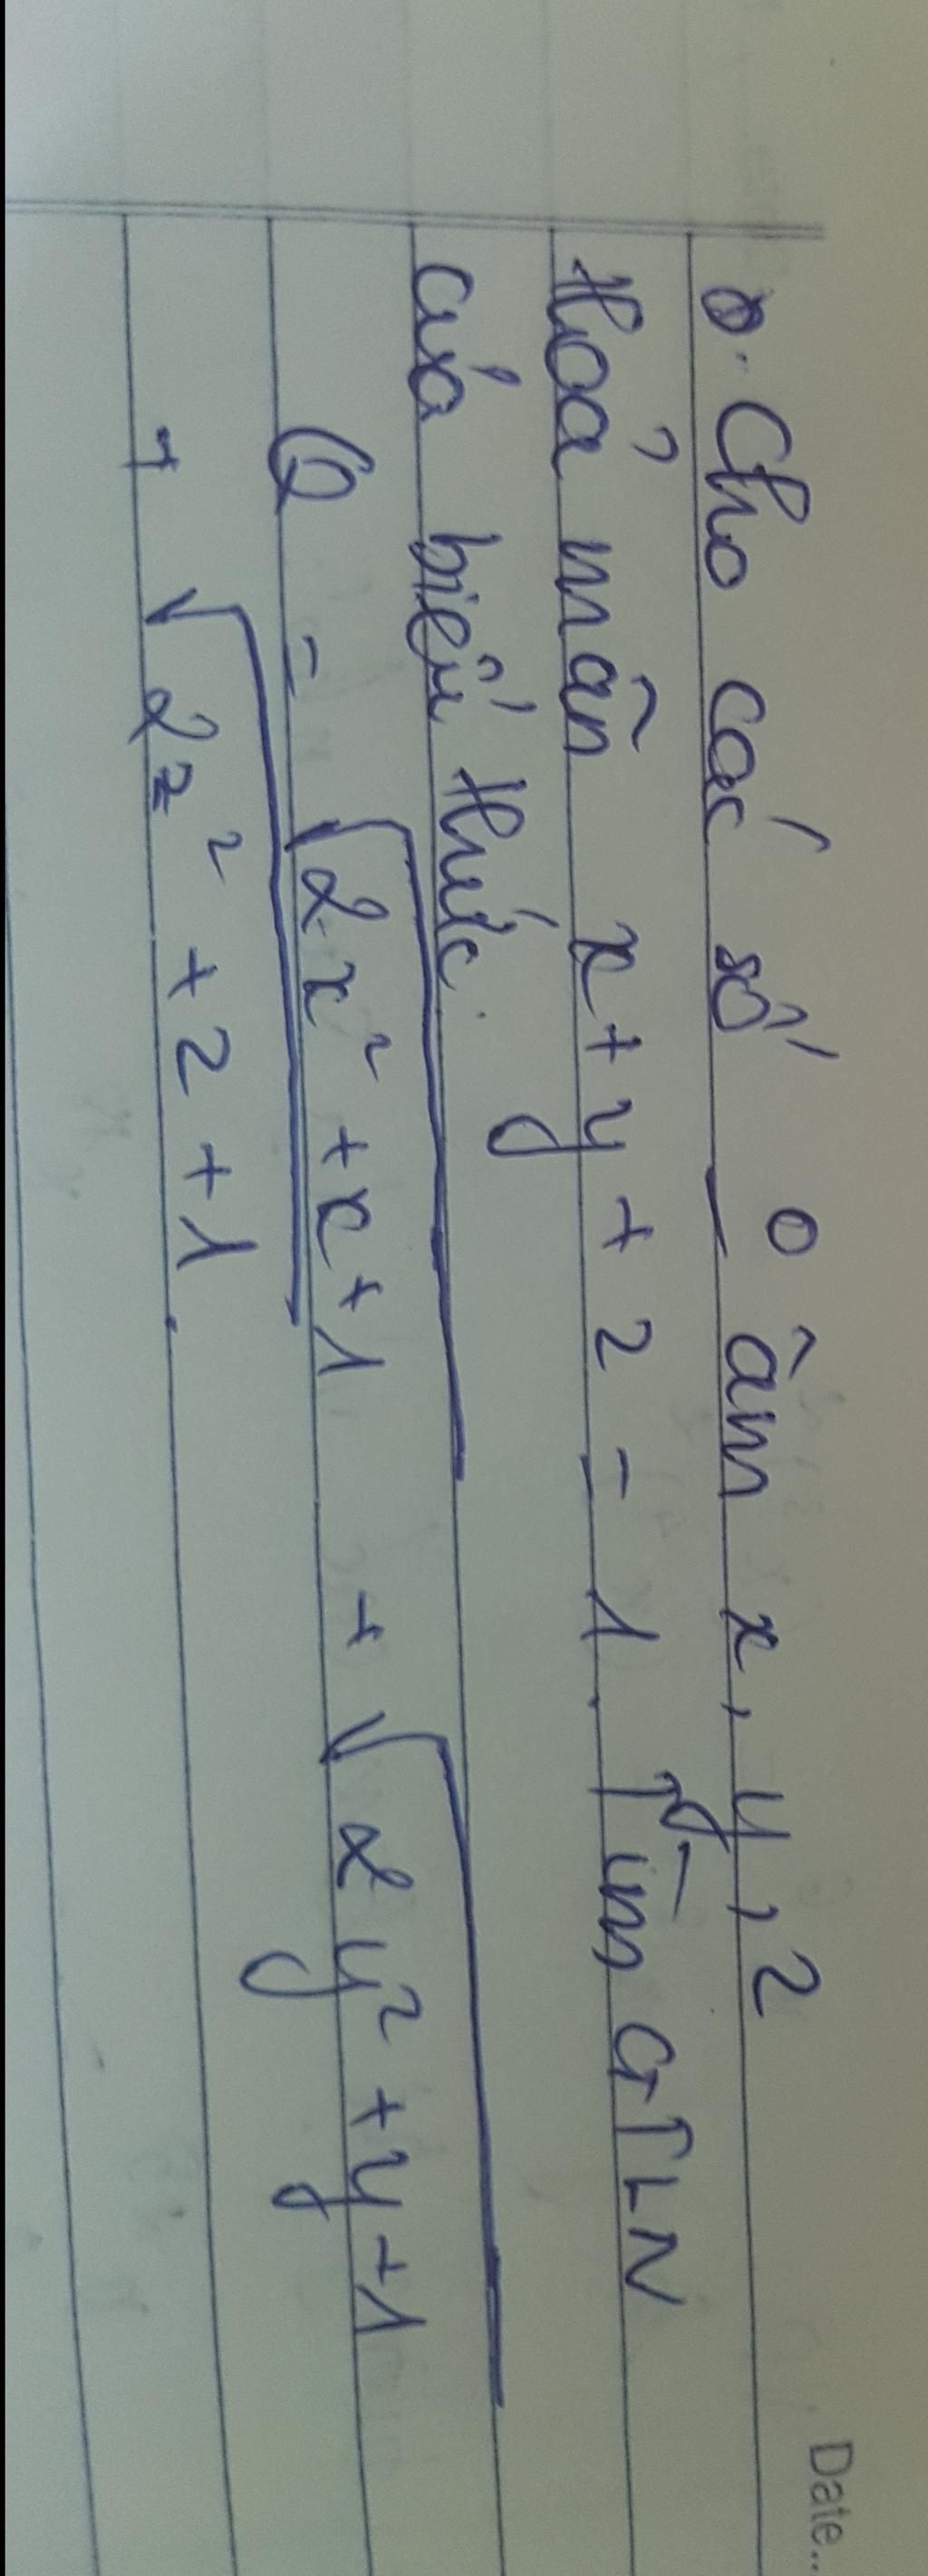 Date...
Cho các số o âm x, y, z
thoả mãn x + y + z = 1. Tìm GTLN
của biểu thức.
Q = √2x² + x + 1 + √2y² + y + 1
+ √2z² + z + 1.